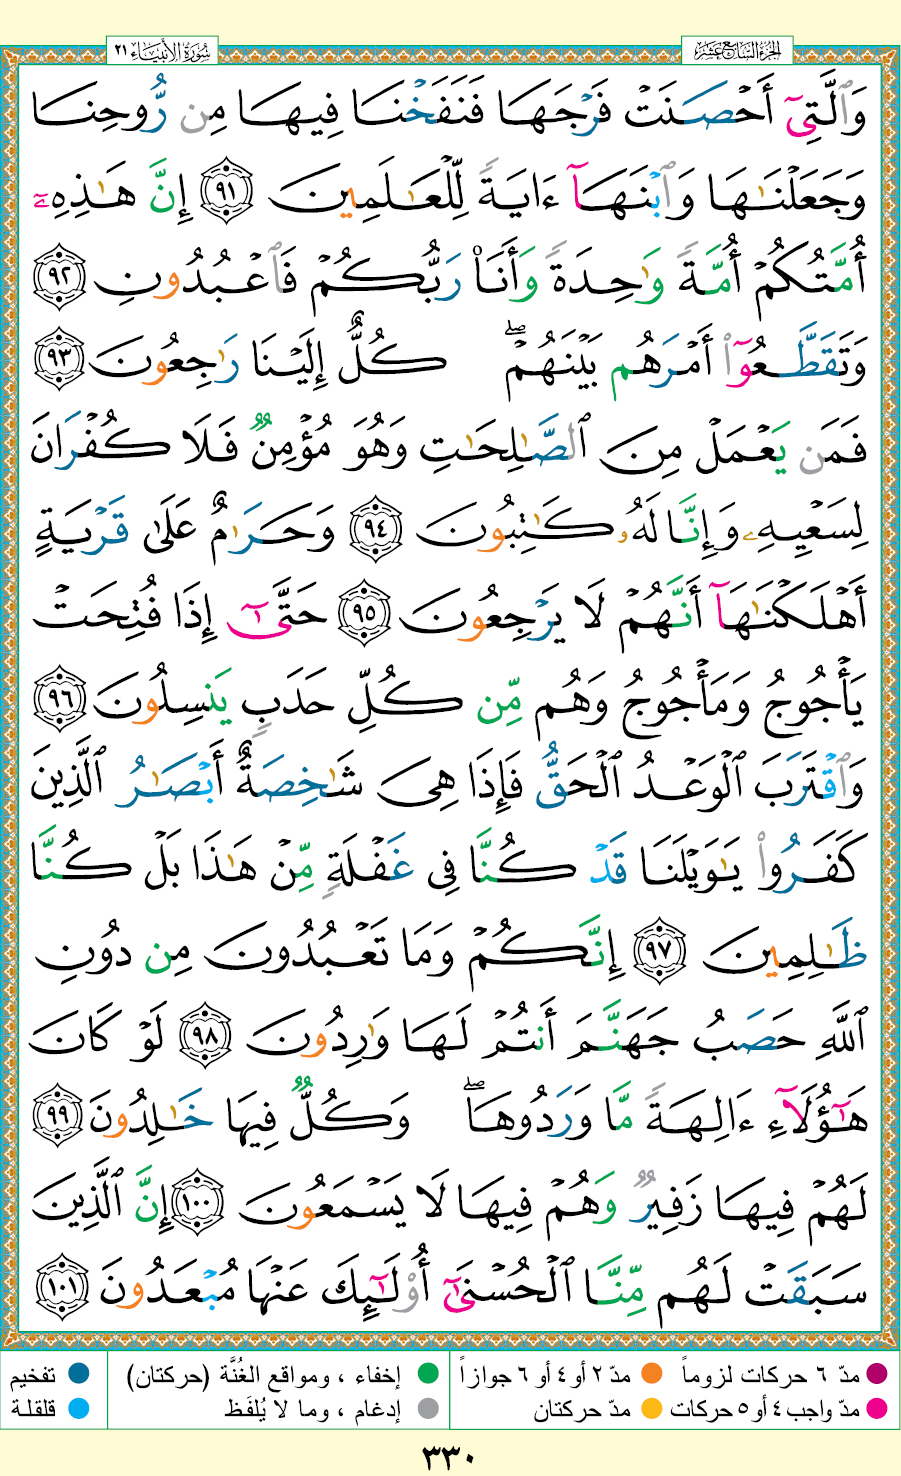 سُورَةُ الأَنبِيَاء ٢١
الجزء السابع عشر
وَٱلَّتِىٓ أَحْصَنَتْ فَرْجَهَا فَنَفَخْنَا فِيهَا مِن رُّوحِنَا
وَجَعَلْنَٰهَا وَٱبْنَهَآ ءَايَةً لِّلْعَٰلَمِينَ ٩١ إِنَّ هَٰذِهِۦٓ
أُمَّتُكُمْ أُمَّةً وَٰحِدَةً وَأَنَا۠ رَبُّكُمْ فَٱعْبُدُونِ ٩٢
وَتَقَطَّعُوٓا۟ أَمْرَهُم بَيْنَهُمْ ۖ كُلٌّ إِلَيْنَا رَٰجِعُونَ ٩٣
فَمَن يَعْمَلْ مِنَ ٱلصَّٰلِحَٰتِ وَهُوَ مُؤْمِنٌ فَلَا كُفْرَانَ
لِسَعْيِهِۦ وَإِنَّا لَهُۥ كَٰتِبُونَ ٩٤ وَحَرَٰمٌ عَلَىٰ قَرْيَةٍ
أَهْلَكْنَٰهَآ أَنَّهُمْ لَا يَرْجِعُونَ ٩٥ حَتَّىٰٓ إِذَا فُتِحَتْ
يَأْجُوجُ وَمَأْجُوجُ وَهُم مِّن كُلِّ حَدَبٍ يَنسِلُونَ ٩٦
وَٱقْتَرَبَ ٱلْوَعْدُ ٱلْحَقُّ فَإِذَا هِىَ شَٰخِصَةٌ أَبْصَٰرُ ٱلَّذِينَ
كَفَرُوا۟ يَٰوَيْلَنَا قَدْ كُنَّا فِى غَفْلَةٍ مِّنْ هَٰذَا بَلْ كُنَّا
ظَٰلِمِينَ ٩٧ إِنَّكُمْ وَمَا تَعْبُدُونَ مِن دُونِ
ٱللَّهِ حَصَبُ جَهَنَّمَ أَنتُمْ لَهَا وَٰرِدُونَ ٩٨ لَوْ كَانَ
هَٰٓؤُلَآءِ ءَالِهَةً مَّا وَرَدُوهَا ۖ وَكُلٌّ فِيهَا خَٰلِدُونَ ٩٩
لَهُمْ فِيهَا زَفِيرٌ وَهُمْ فِيهَا لَا يَسْمَعُونَ ١٠٠ إِنَّ ٱلَّذِينَ
سَبَقَتْ لَهُم مِّنَّا ٱلْحُسْنَىٰٓ أُو۟لَٰٓئِكَ عَنْهَا مُبْعَدُونَ ١٠١
مدّ ٦ حركات لزوماً مدّ ٢ أو ٤ أو ٦ جوازاً إخفاء ، ومواقع الغُنَّة (حركتان) تفخيم
مدّ واجب ٤ أو ٥ حركات مدّ حركتان إدغام ، وما لا يُلفَظ قلقلة
٣٣٠